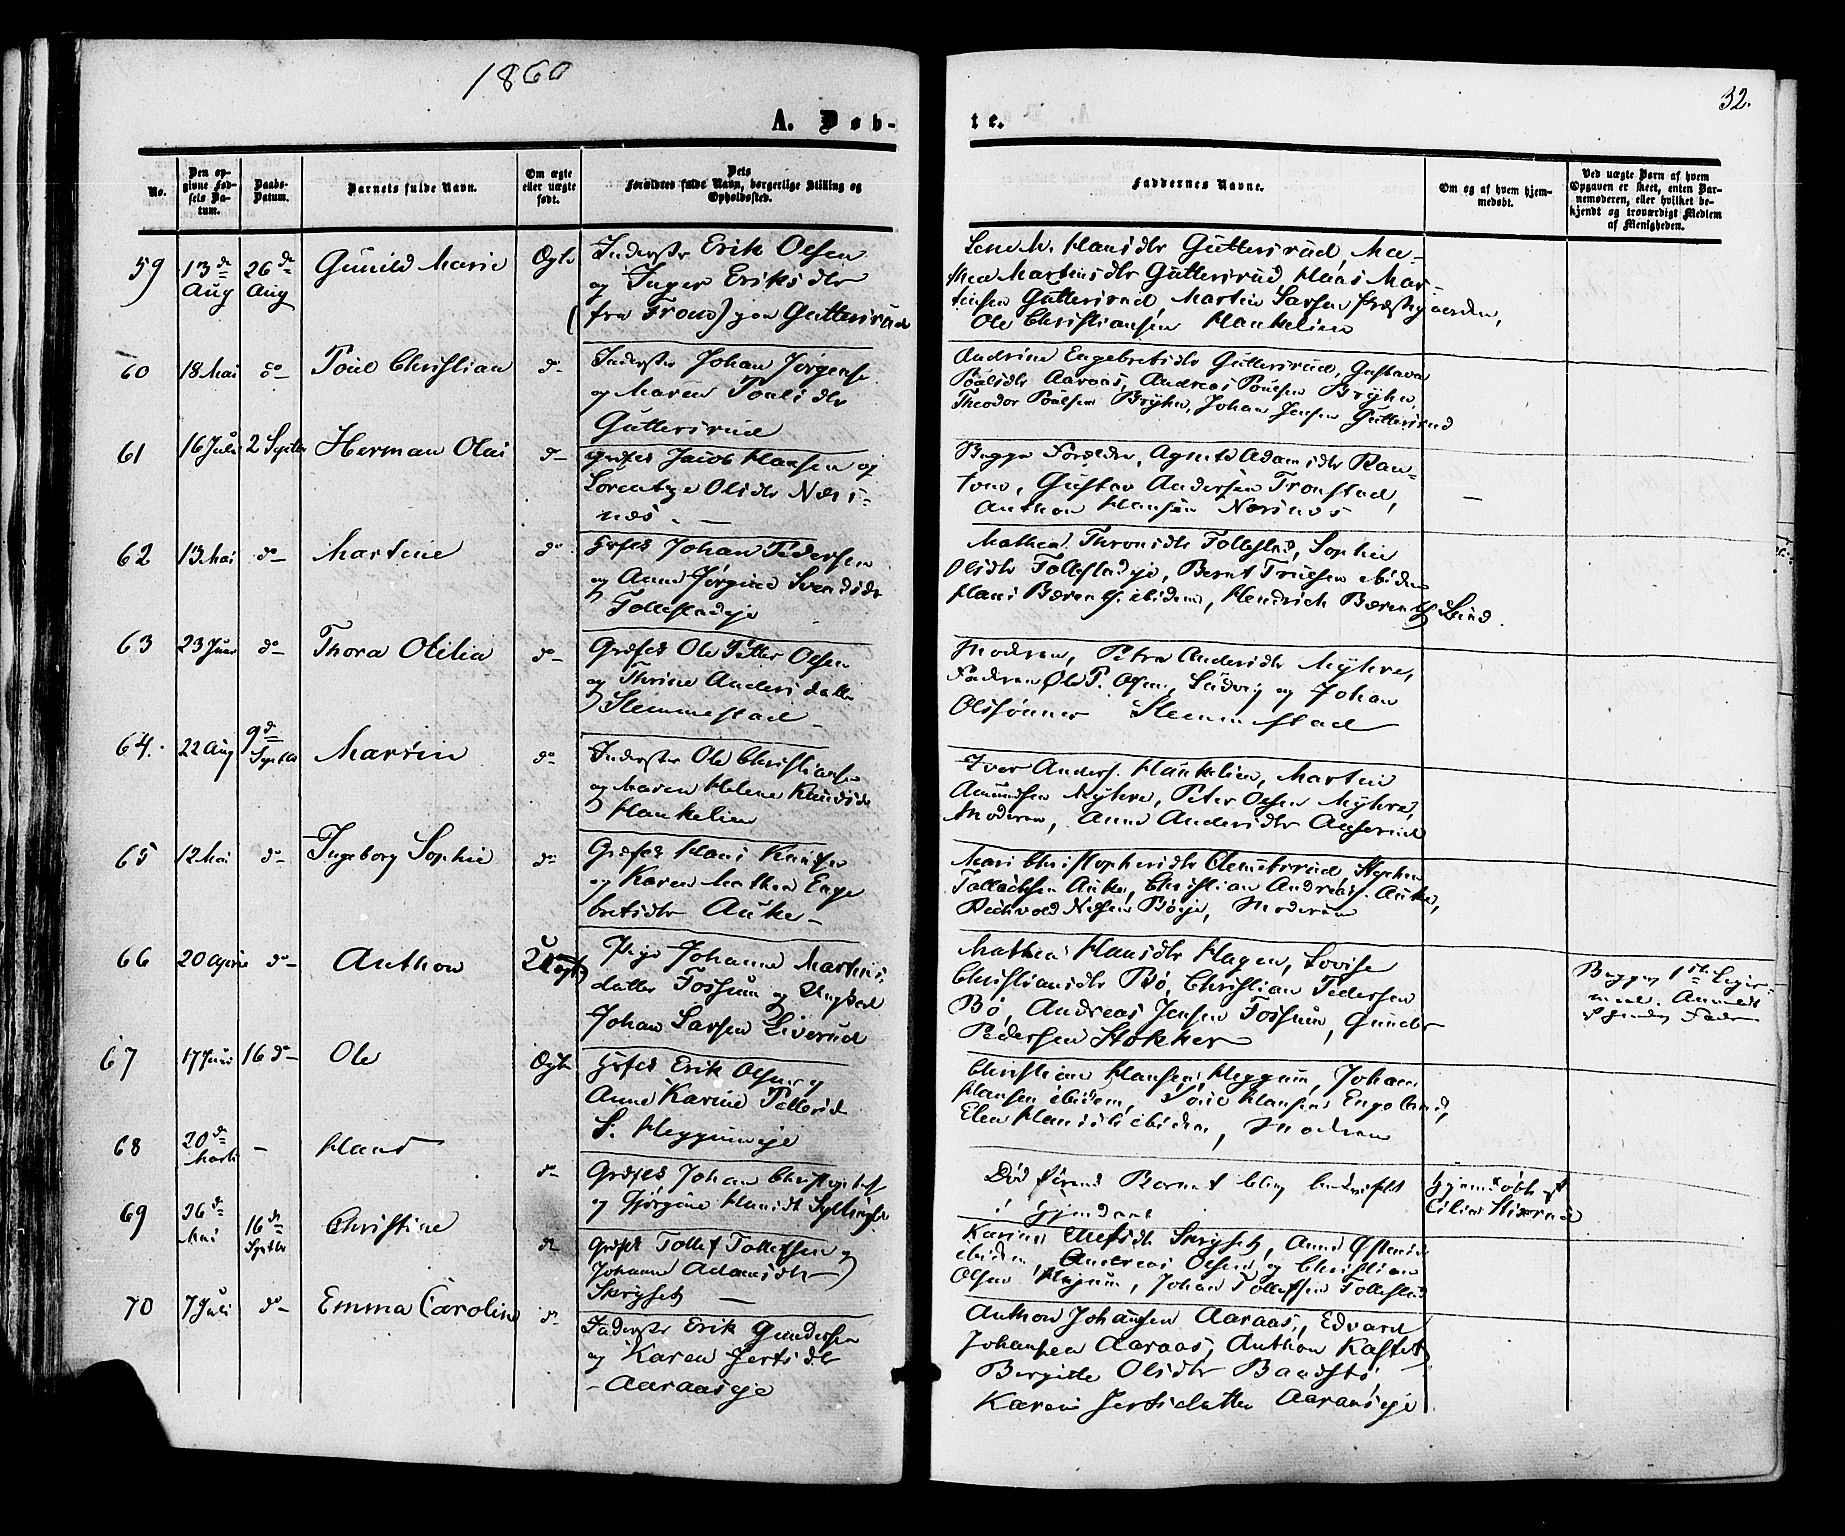 1860
32.
A. Døb-
te.
No.
Den op-
givne Fød-
sels Da-
tum.
Daabs-
Datum.
Barnets fulde Navn.
Om ægte
eller uægte
født.
Dets
Forældres fulde Navn, borgerlige Stilling og
Opholdssted.
Faddernes Navne.
Om og af hvem hjem-
medøbt.
Ved uægte Børn af hvem
Opgaven er skeet, enten Bar-
nemoderen, eller hvilket be-
kjendt og troværdigt Medlem
af Menigheden.
59 13de Aug 26de Aug Gunild Marie Ægte
Inderster Erik Olsen
og Inger Eriksdtr
(fra Tromø) paa Guttersrud
Lene M. Hansdtr Guttersrud, Ma-
thea Martinsdtr Guttersrud, Hans Mar-
tinsen Guttersrud, Martin Larsen Præstegaarden,
Ole Christiansen Haukelien
60 18 Mai do- Poul Christian do-
Inderster Johan Jørgensen
og Maren Poulsdtr
Guttersrud
Andrine Engebretsdtr Guttersrud, Gustava
Poulsdtr Aaraas, Andreas Poulsen Bryhn,
Theodor Poulsen Bryhn, Johan Jensen Guttersrud
61 16 Juli 2 Septbr Herman Olai do-
Grdfst Jacob Hansen og
Lorentze Olsdtr Næs-
næs. -
Begge Forældre, Agnete Adamsdtr Ran-
tom, Gustav Andersen Tronstad,
Anthon Hansen Næsnæs
-
62 13 Mai do- Martine do
Hsfst Johan Pedersen
og Anne Jørgine Svendsdtr
Tollefsladeje
Mathea Thronsdtr Follestad, Sophie
Olsdtr Follestadeje, Bernt Truesen ibidem
Hans Bærentz. ibidem, Hendrich Bærentz Lund.
63 23 Juni do- Thora Otilia do-
Grdfst Ole Petter Olsen
og Thrine Andersdatter
Slemmestad -
Moderen, Petra Andersdtr Myhre,
Faderen Ole P. Olsen, Ludvig og Johan
Olssønner Slemmestad
64. 22 Aug 9de Septbr Martin do-
Inderster Ole Christiansen
og Maren Helene Knudsdtr
Haukelien
Iver Anders. Haukelien, Martin
Amundsen Myhre, Peter Olsen Myhre,
Moderen, Anne Andersdtr
65 12 Mai do- Ingeborg Sophie do-
Grdfst Hans Knudsen
og Karen Mathea Enge
bretsdtr Auke -
Mari Christophersdtr Clemetsrud, Stephen
Tollefsen Auke, Christian Andreas. Auke,
Nelsen Bøeje, Moderen
66 20 April do- Anthon Uægte
Pige Johanne Martins
datter Fossum og Ungkarl
Johan Larsen Liverud
Mathea Hansdtr Hagen, Lovise
Christiansdtr Bø, Christian Pedersen
Bø, Andreas Jensen Fossum, Gunder
Pedersen Stokker
Begges 1ste Leier-
maal. Anmeldt
67 17 Juni 16 do- Ole Ægte
Hsfst Erik Olsen og
Anne Karine Pallesd
S. Heggumeje
Christian Hansen Heggum, Johan
Hansen ibidem, Hansen Engeland,
Elen Hansdtr ibidem, Moderen
68 20de Marts - Hans do-
Grdfst Johan Christophers
og Gjørgine Hansdtr Syllingst
Død førend Barnet blev bekræftet
i Gjendøbt
Hjemdøbt af
69 26de Mai 16de Septbr Christine do
Grdfst Tollef Tollefsen og
Johanne Adamsdtr
Skryset -
Skryset, Anne
ibidem, Andreas Olsen og Christian
Olsen Hegum, Johan Tollefsen Follestad
70 7 Juli do- Emma Caroline do-
Inderster Erik Gundersen
og Karen Jertsdtr
- Aaraaseje
Anthon Johansen Aaraas, Edvard
Johansen Aaraas, Anthon Kastet,
Bergitte Olsdtr Baadstø
Karen Jertsdatter Aaraaseje